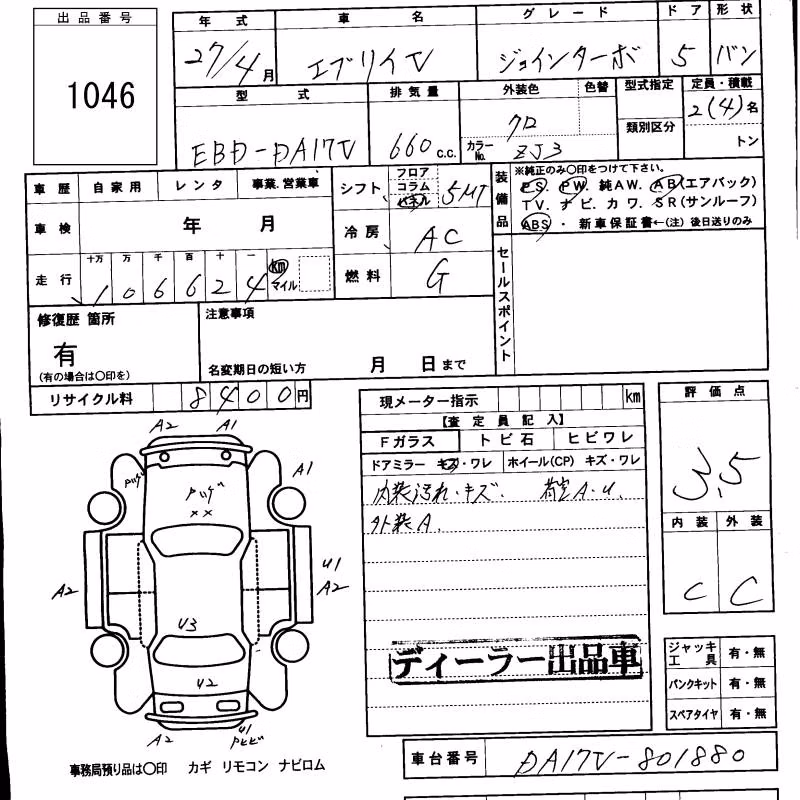 出品番号
1046
年式 車名 グレード ドア 形状
27/4月 エブリイV ジョインターボ 5 バン
型式 排気量 外装色 色替 型式指定 定員・積載
EBD-DA17V 660c.c. クロ 類別区分 2(4)名
カラーNo. ZJ3 トン
車歴 自家用 レンタ 事業.営業車
車検 年 月
走行 十万 万 千 百 十 一
1 0 6 6 2 4 km マイル
シフト フロア コラム パネル 5MT
冷房 AC
燃料 G
装備品
※純正のみ○印をつけて下さい。
PS. PW. 純AW. AB(エアバック)
TV. ナビ. カワ. SR(サンルーフ)
ABS ・ 新車保証書←(注) 後日送りのみ
セールスポイント
修復歴 箇所
有
(有の場合は○印を)
注意事項
名変期日の短い方 月 日まで
リサイクル料 8400円
現メーター指示 km
【査定員記入】
Fガラス トビ石 ヒビワレ
ドアミラー キズ・ワレ ホイール(CP) キズ・ワレ
内装汚れ・キズ. 荷室A・U.
外装A.
ディーラー出品車
評価点
3.5
内装 外装
C C
ジャッキ工具 有・無
パンクキット 有・無
スペアタイヤ 有・無
車台番号 DA17V-801880
A2 A1
A1
××
A2
U1
A2
U3
U2
A2
U1
事務局預り品は○印 カギ リモコン ナビロム